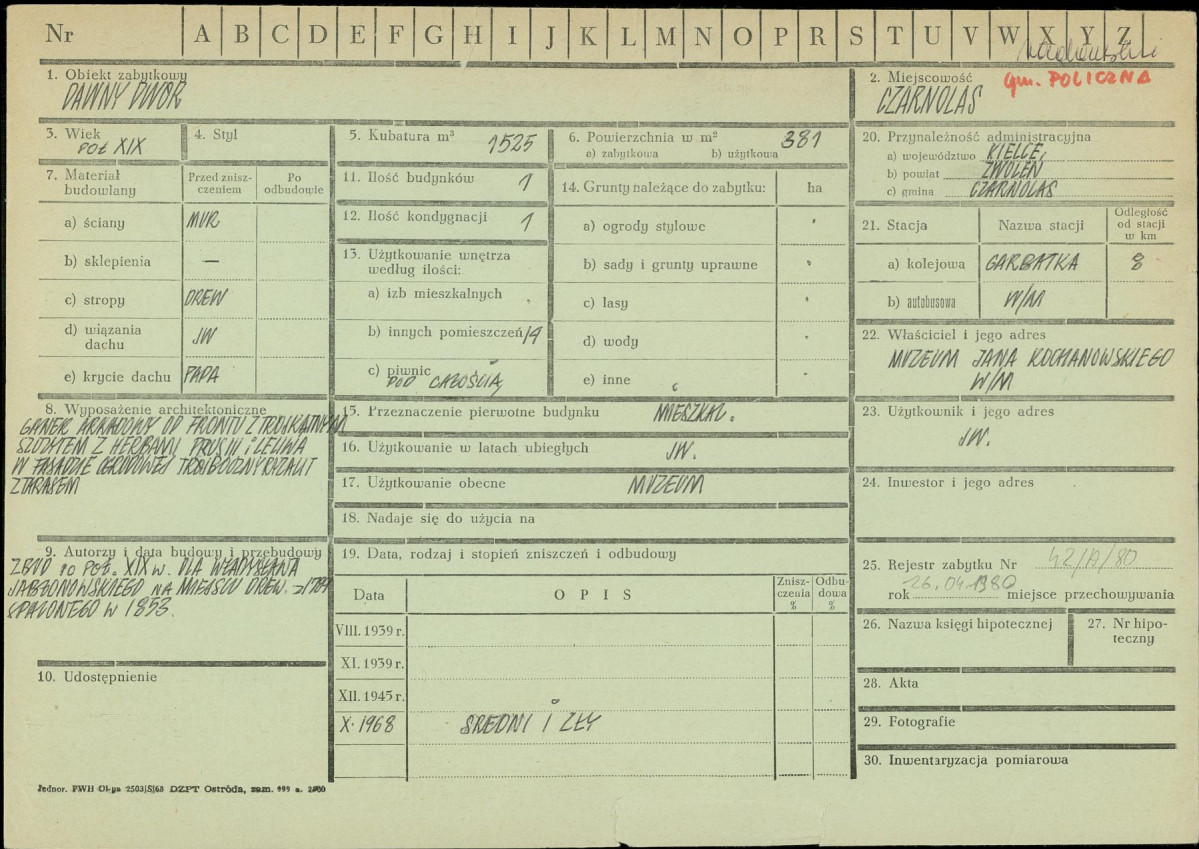 Nr A B C D E F G H I J K L M N O P R S T U V W X Y Z
1. Obiekt zabytkowy
DAWNY DWÓR
2. Miejscowość
gm. POLICZNA
CZARNOLAS
3. Wiek
POŁ XIX
4. Styl
5. Kubatura m³ 1525
6. Powierzchnia w m² 381
a) zabytkowa b) użytkowa
20. Przynależność administracyjna
a) województwo KIELCE,
b) powiat ZWOLEŃ
c) gmina CZARNOLAS
7. Materiał budowlany
Przed znisz-
czeniem
Po
odbudowie
a) ściany MUR
b) sklepienia —
c) stropy DREW
d) wiązania
dachu JW
e) krycie dachu PAPA
11. Ilość budynków 1
12. Ilość kondygnacji 1
13. Użytkowanie wnętrza
według ilości:
a) izb mieszkalnych
b) innych pomieszczeń 19
c) piwnic
POD CAŁOŚCIĄ
14. Grunty należące do zabytku: ha
a) ogrody stylowe
b) sady i grunty uprawne
c) lasy
d) wody
e) inne
21. Stacja Nazwa stacji
Odległość
od stacji
w km
a) kolejowa GARBATKA 8
b) autobusowa W/M
22. Właściciel i jego adres
MUZEUM JANA KOCHANOWSKIEGO
W/M
8. Wyposażenie architektoniczne
GANEK ARKADOWY OD FRONTU Z TRÓJKĄTNYM
SZCZYTEM Z HERBAMI PRUS III i LELIWA
W FASADZIE OGRODOWEJ TRÓJBOCZNY RYZALIT
Z TARASEM
15. Przeznaczenie pierwotne budynku MIESZKAL.
16. Użytkowanie w latach ubiegłych JW.
17. Użytkowanie obecne MUZEUM
18. Nadaje się do użycia na
23. Użytkownik i jego adres
JW.
24. Inwestor i jego adres
9. Autorzy i data budowy i przebudowy
ZBUD PO POŁ. XIX w. DLA WŁADYSŁAWA
JABŁONOWSKIEGO NA MIEJSCU DREW. z
SPALONEGO W 1853.
10. Udostępnienie
19. Data, rodzaj i stopień zniszczeń i odbudowy
Data OPIS
Znisz-
czenia
%
Odbu-
dowa
%
VIII. 1939 r.
XI. 1939 r.
XII. 1945 r.
X. 1968 ŚREDNI I ZŁY
25. Rejestr zabytku Nr 42/A/80
rok 26.04.1980 miejsce przechowywania
26. Nazwa księgi hipotecznej
27. Nr hipo-
teczny
28. Akta
29. Fotografie
30. Inwentaryzacja pomiarowa
DZPT Ostróda, zam.